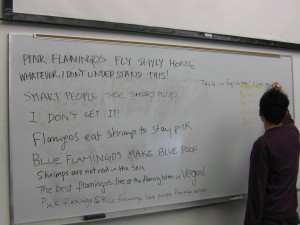 PINK FLAMINGOS FLY SHYLY HOME
WHATEVER, I DON'T UNDERSTAND THIS!
This is
SMART PEOPLE SEE SMART PEOPLE
I DON'T GET IT!
Flamingos eat shrimp to stay pink
BLUE FLAMINGOS MAKE BLUE POOP
Shrimps are not red in the sea
The best flamingos live at the flamingo hilton in Vegas!
Pink flamingos & Blue flamingos have people